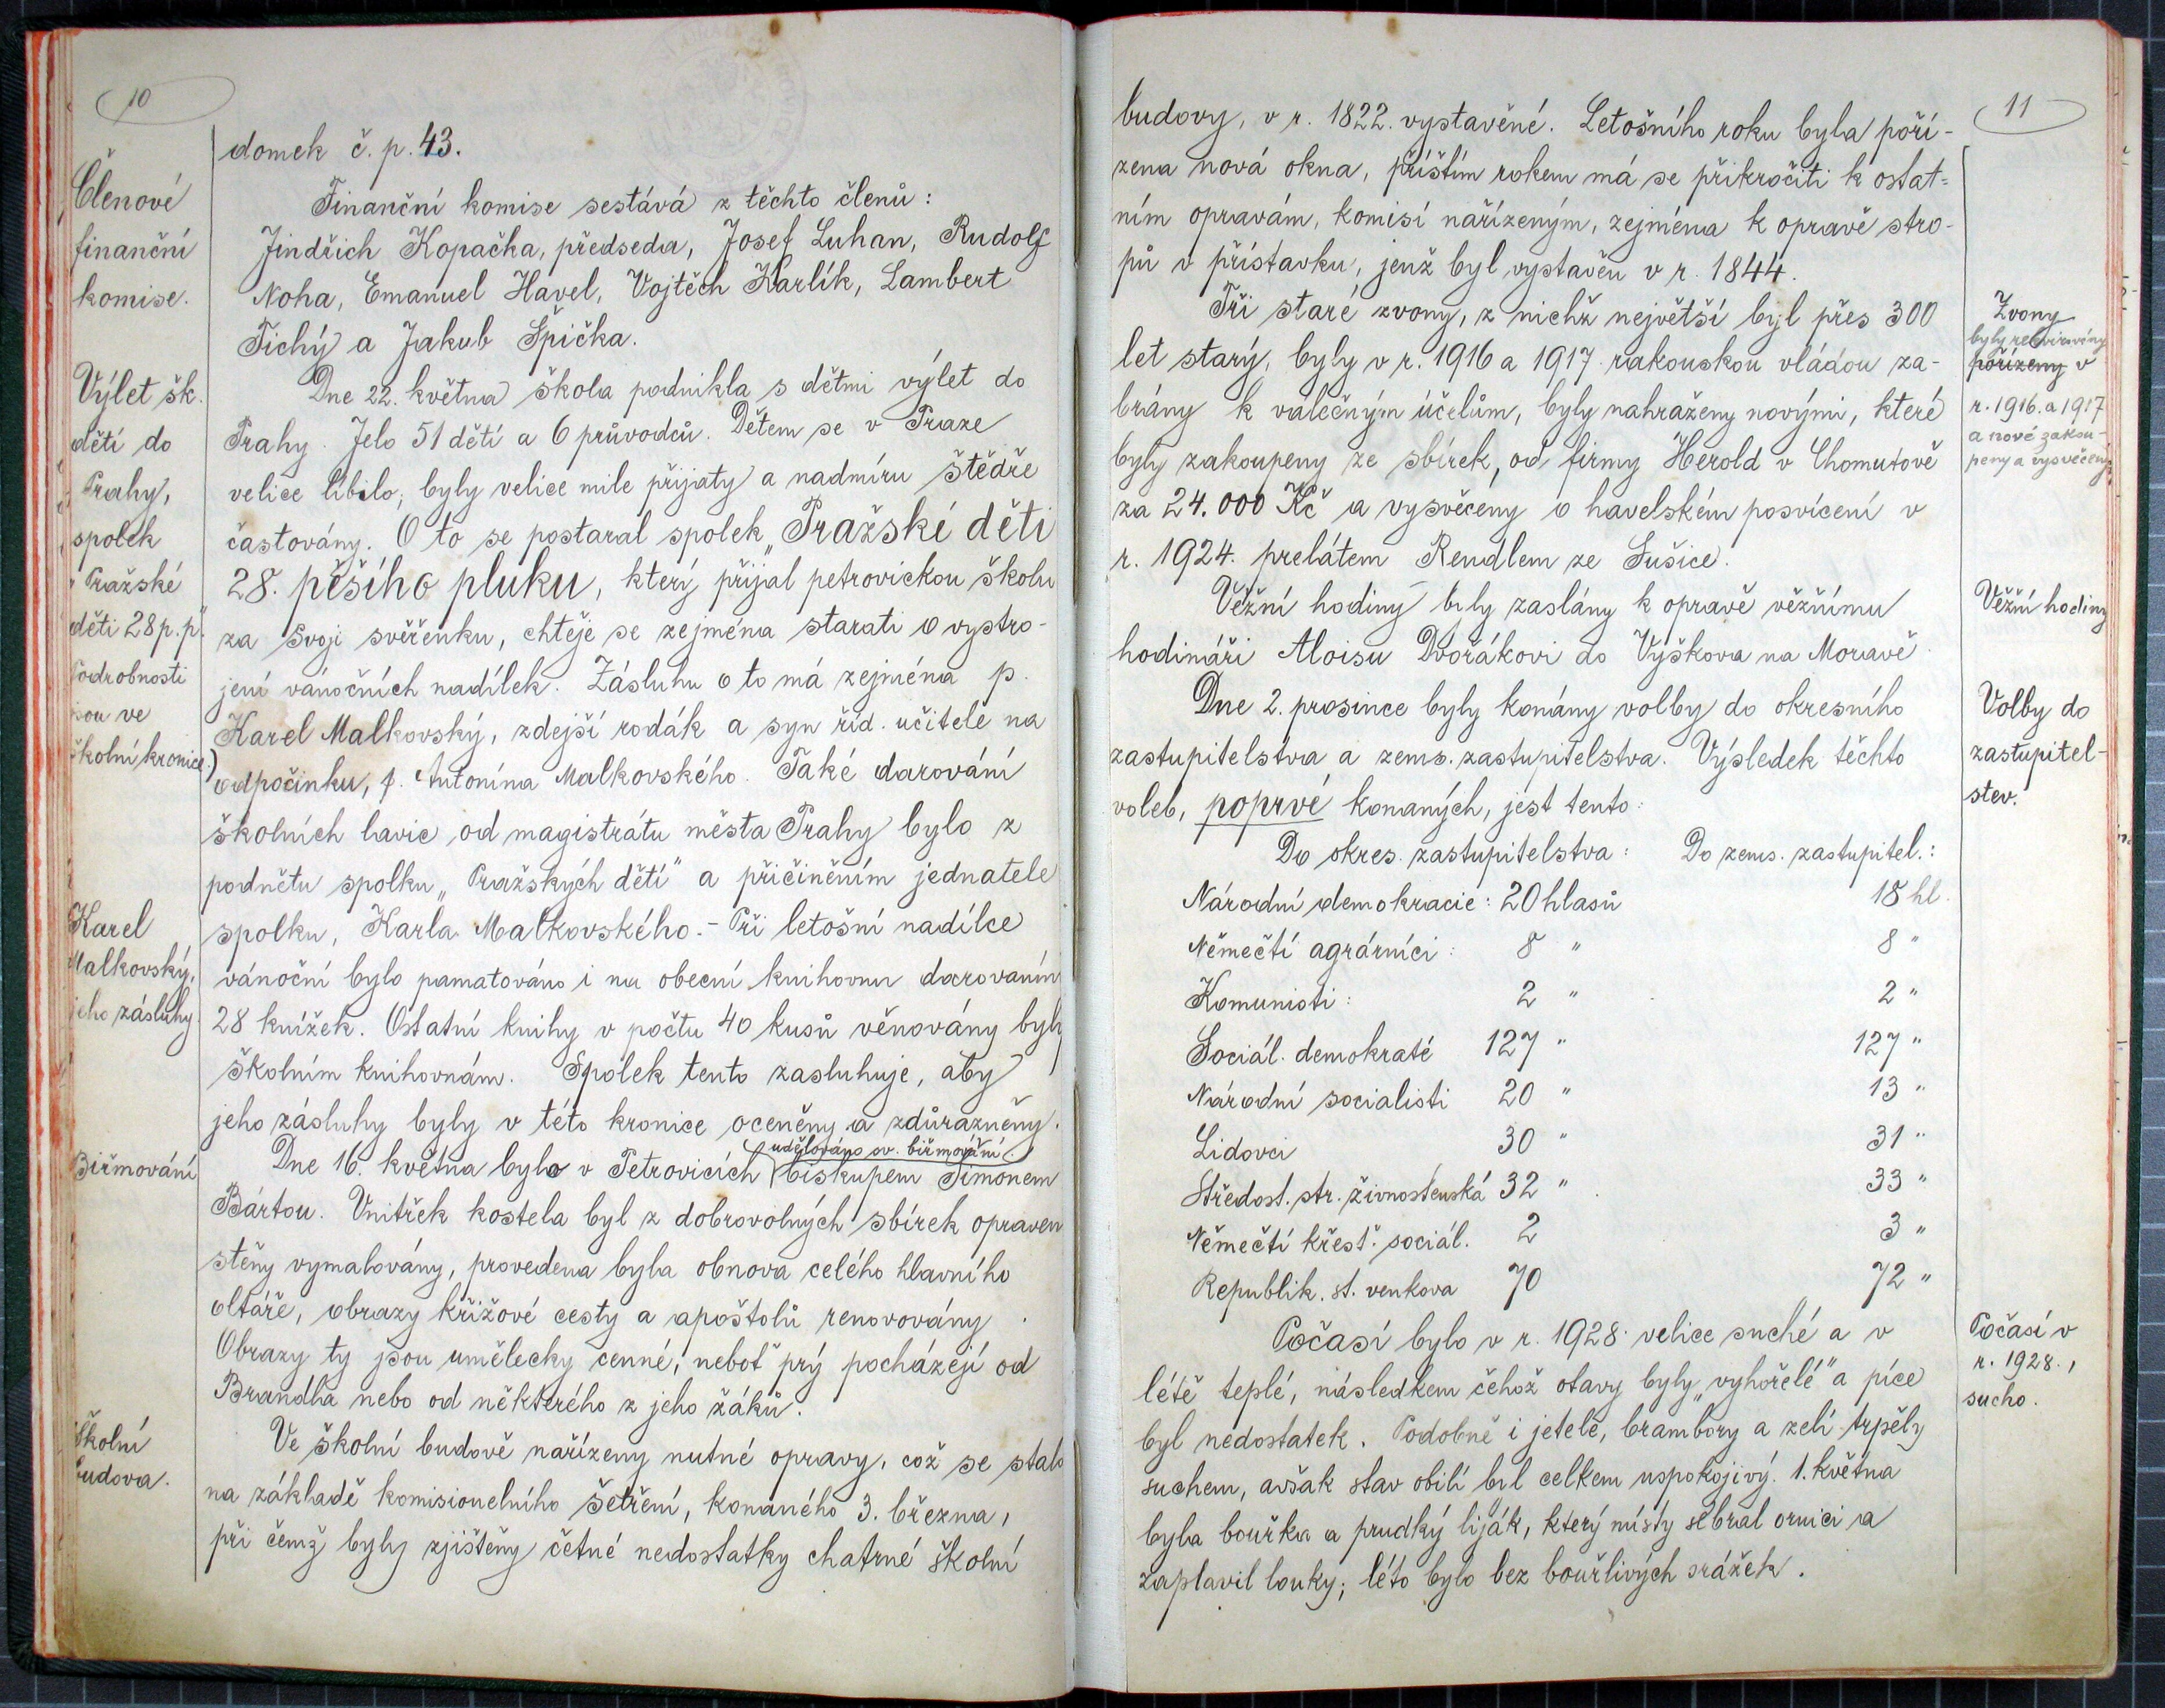 10
domek č. p. 43.
Členové
finanční
komise.
Finanční komise sestává z těchto členů:
Jindřich Kopačka, předseda, Josef Luhan, Rudolf
Noha, Emanuel Havel, Vojtěch Karlík, Lambert
Tichý a Jakub Špička.
Výlet šk.
dětí do
Prahy,
spolek
„Pražské
děti 28 p. p."
Podrobnosti
jsou ve
školní kronice.)
Dne 22. května škola podnikla s dětmi výlet do
Prahy. Jelo 51 dětí a 6 průvodců. Dětem se v Praze
velice líbilo; byly velice mile přijaty a nadmíru štědře
častovány. O to se postaral spolek „Pražské děti
28. pěšího pluku, který přijal petrovickou školu
za svoji svěřenku, chtěje se zejména starati o vystro-
jení vánočních nadílek. Zásluhu o to má zejména p.
Karel Malkovský, zdejší rodák a syn říd. učitele na
odpočinku, p. Antonína Malkovského. Také darování
školních lavic od magistrátu města Prahy bylo z
podnětu spolku „Pražských dětí" a přičiněním jednatele
Karel
Malkovský,
jeho zásluhy.
spolku, Karla Malkovského. – Při letošní nadílce
vánoční bylo pamatováno i na obecní knihovnu darovaním
28 knížek. Ostatní knihy v počtu 40 kusů věnovány byly
školním knihovnám. Spolek tento zasluhuje, aby
jeho zásluhy byly v této kronice oceněny a zdůrazněny.
Biřmování
udělováno sv. biřmování
Dne 16. května bylo v Petrovicích biskupem Šimonem
Bártou. Vnitřek kostela byl z dobrovolných sbírek opraven
stěny vymalovány, provedena byla obnova celého hlavního
oltáře, obrazy křížové cesty a apoštolů renovovány.
Obrazy ty jsou umělecky cenné, neboť prý pocházejí od
Brandla nebo od některého z jeho žáků.
Školní
budova.
Ve školní budově nařízeny nutné opravy, což se stalo
na základě komisionelního šetření, konaného 3. března,
při čemž byly zjištěny četné nedostatky chatrné školní
11
budovy, v r. 1822. vystavěné. Letošního roku byla poří-
zena nová okna, příštím rokem má se přikročiti k ostat-
ním opravám, komisí nařízeným, zejména k opravě stro-
pů v přístavku, jenž byl vystavěn v r. 1844.
Zvony
byly rekvirovány
pořízeny v
r. 1916. a 1917
a nové zakou-
peny a vysvěceny
Tři staré zvony, z nichž největší byl přes 300
let starý, byly v r. 1916 a 1917 rakouskou vládou za-
brány k válečným účelům, byly nahraženy novými, které
byly zakoupeny ze sbírek, od firmy Herold v Chomutově
za 24.000 Kč a vysvěceny o havelském posvícení v
r. 1924. prelátem Rendlem ze Sušice.
Věžní hodiny
Věžní hodiny byly zaslány k opravě věžnímu
hodináři Aloisu Dvořákovi do Vyškova na Moravě.
Volby do
zastupitel-
stev.
Dne 2. prosince byly konány volby do okresního
zastupitelstva a zems. zastupitelstva. Výsledek těchto
voleb, poprvé konaných, jest tento:
Do okres. zastupitelstva: Do zems. zastupitel.:
Národní demokracie: 20 hlasů 18 hl.
Němečtí agrárníci: 8 " 8 "
Komunisti: 2 " 2 "
Sociál. demokraté 127 " 127 "
Národní socialisti 20 " 13 "
Lidovci 30 " 31 "
Středost. str. živnostenská 32 " 33 "
Němečtí křesť. sociál. 2 3 "
Republik. st. venkova 70 72 "
Počasí v
r. 1928.,
sucho.
Počasí bylo v r. 1928 velice suché a v
létě teplé, následkem čehož otavy byly „vyhořelé" a píce
byl nedostatek. Podobně i jetele, brambory a zelí trpěly
suchem, avšak stav obilí byl celkem uspokojivý. 1. května
byla bouřka a prudký liják, který místy sebral ornici a
zaplavil louky; léto bylo bez bouřlivých srážek.